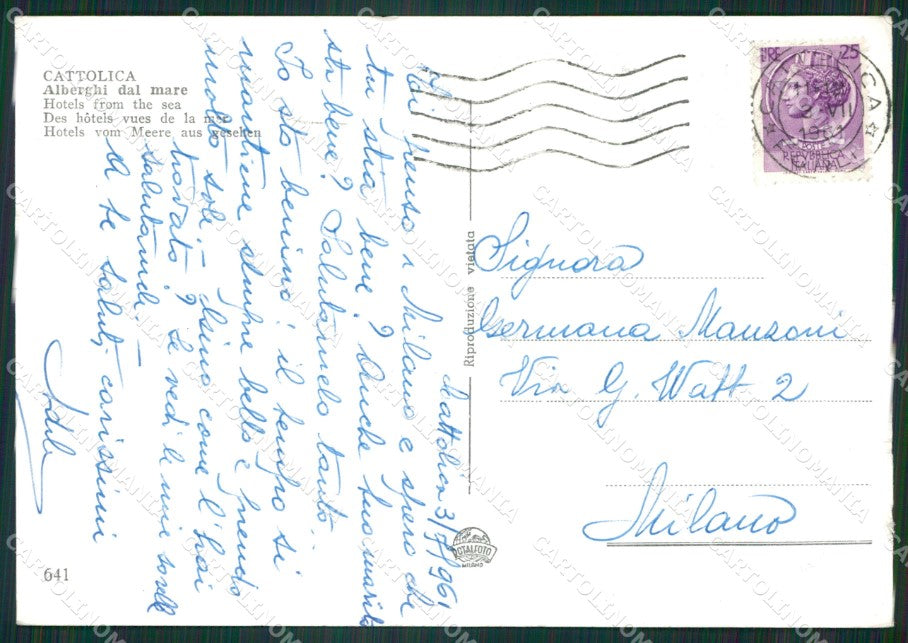 CATTOLICA
Alberghi dal mare
Hotels from the sea
Des hôtels vues de la mer
Hotels vom Meere aus gesehen
Cattolica 3/7/961
penso a Milano e spero che
tu stia bene? Anche tuo marito
sta bene? Salutamelo tanto..
Io sto benino; il tempo si
mantiene sempre bello e
molto sole. Gino come l'hai
trovato? Se vedi le mie sorelle
salutamele
A te saluti carissimi
Adele
641
Riproduzione vietata
OTALFOTO
MILANO
LIRE 25
POSTE
REPVBBLICA
ITALIANA
CATTOLICA
1961
Signora
Germana Manzoni
Via G. Watt 2
Milano
CARTOLINOMANIA